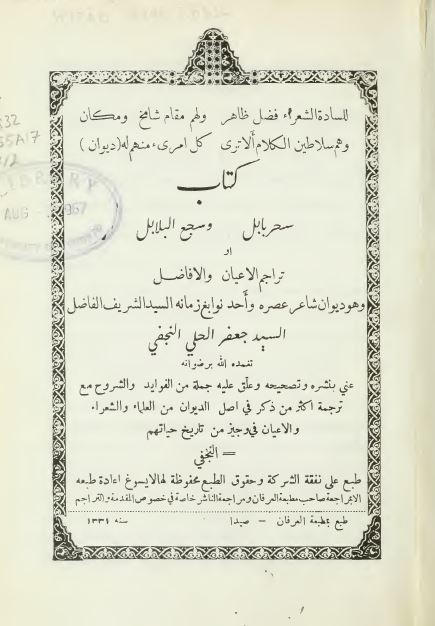 للسادة الشعراء فضل ظاهر ولهم مقام شامخ ومكان
وهم سلاطين الكلام ألا ترى كل امرىء منهم له (ديوان)
كتاب
سحر بابل وسجع البلابل
او
تراجم الاعيان والافاضل
وهو ديوان شاعر عصره وأحد نوابغ زمانه السيد الشريف الفاضل
السيد جعفر الحلي النجفي
تغمده الله برضوانه
عني بنشره وتصحيحه وعلق عليه جملة من الفوايد والشروح مع
ترجمة اكثر من ذكر في اصل الديوان من العلماء والشعراء
والاعيان في وجيز من تاريخ حياتهم
= النجفي
طبع على نفقة الشركة وحقوق الطبع محفوظة لها لا يسوغ اعادة طبعه
الا بمراجعة صاحب مطبعة العرفان ومراجعة الناشر خاصة في خصوص المقدمة والتراجم
طبع بمطبعة العرفان – صيدا سنه ١٣٣١
LIBRARY
AUG 1967